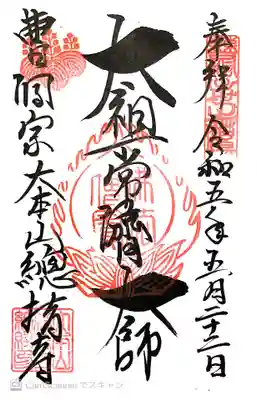 奉拜 令和五年五月二十二日
太祖常濟大師
曹洞宗大本山總持寺
CamScannerでスキャン